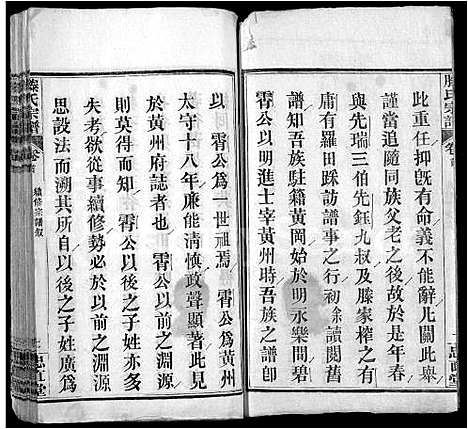 此重任抑旣有命義不能辭儿關此舉
謹當追隨同族父老之後於是
與先瑞三伯先鈺九叔及滕家榨之有
慶有羅田踩訪譜事之行初余讀閱舊
譜知吾族駐籍黃岡始於明永樂間碧
霄公以明進士宰黃州時吾族之譜卽
滕氏宗譜
以霄公爲一世祖焉霄公爲黃州
太守十八年廉能清愼政聲顯著此見
於黃州府誌者也霄公以前之淵源
則莫得而知霄公以後之子姓亦多
失考欲從事續修勢必於以前之淵源
思設法而溯其自以後之子姓廣爲
滕氏宗譜
卷首
續修宗譜敘
思直堂